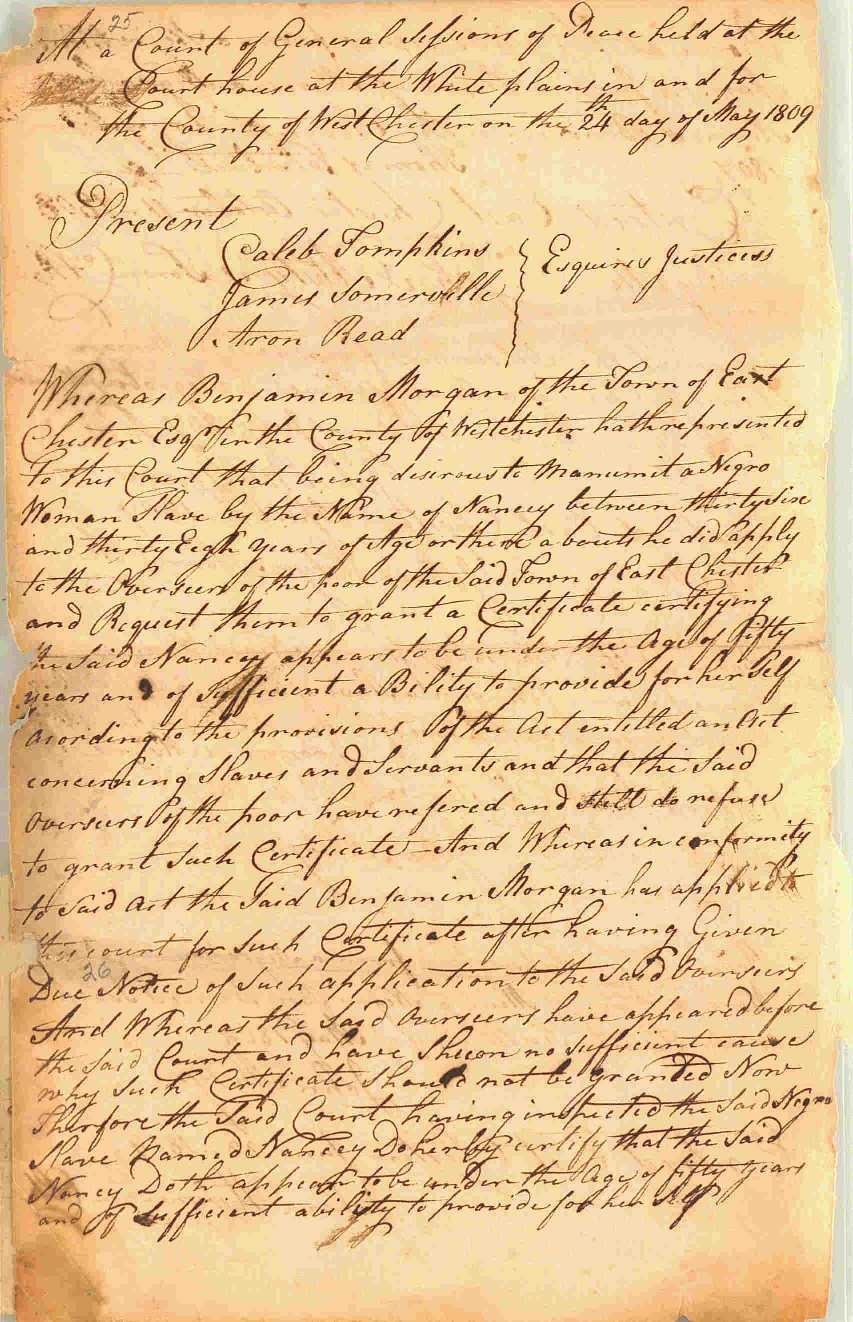 25
At a Court of General Sessions of Peace held at the
Court house at the White plains in and for
the County of West Chester on the 24th day of May 1809
Present
Caleb Tompkins
James Somerville
Aron Read
Esquires Justicess
Whereas Benjamin Morgan of the Town of East
Chester Esqr in the County of Westchester hath represented
to this Court that being desirous to Manumit a Negro
Woman Slave by the Name of Nancey between thirty Six
and thirty Eigh years of Age or there abouts he did apply
to the Overseers of the poor of the Said Town of East Chester
and Request them to grant a Certificate certifying
the Said Nancey appears to be under the Age of Fifty
years and of Sufficient a Bility to provide for her Self
acording to the provisions of the Act entitled an Act
concerning Slaves and Servants and that the Said
Overseers of the poor have refered and still do refuse
to grant Such Certificate And Whereas in conformity
to Said act the Said Benjamin Morgan has applied to
this court for Such Certificate after having Given
26
Due Notice of Such application to the Said Overseers
And Whereas the Said Overseers have appeared before
the Said Court and have Shewn no Sufficient cause
why Such Certificate Should not be granted Now
Therfore the Said Court having inspected the Said Negro
Slave Named Nancey Do herby certify that the Said
Nancy Doth appear to be under the Age of fifty years
and of Sufficient ability to provide for her Self